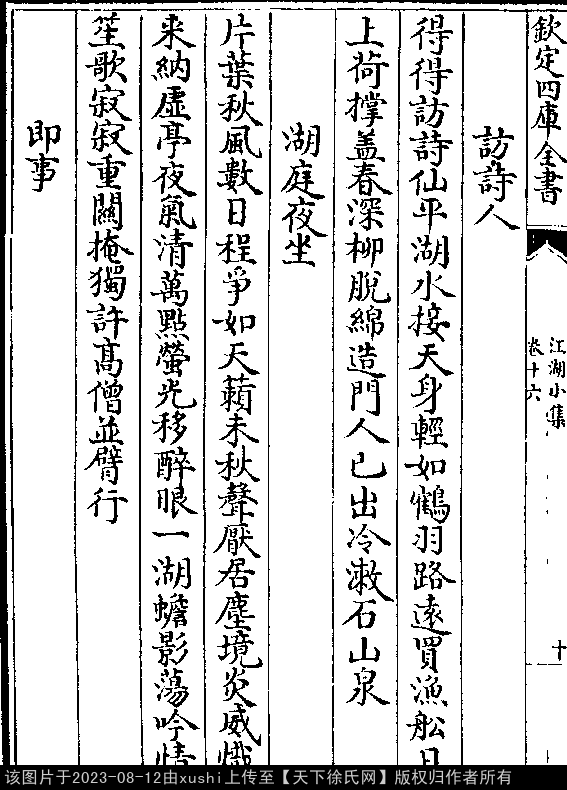 欽定四庫全書
江湖小集
卷十六
十
訪詩人
得得訪詩仙平湖水接天身輕如鶴羽路遠買漁船日
上荷撑盖春深柳脫綿造門人已出冷漱石山泉
湖庭夜坐
片葉秋風數日程爭如天籟未秋聲厭居塵境炎威熾
来納虛亭夜氣清萬點螢光移醉眼一湖蟾影蕩吟情
笙歌寂寂重關掩獨許髙僧並臂行
即事
该图片于2023-08-12由xushi上传至【天下徐氏网】版权归作者所有